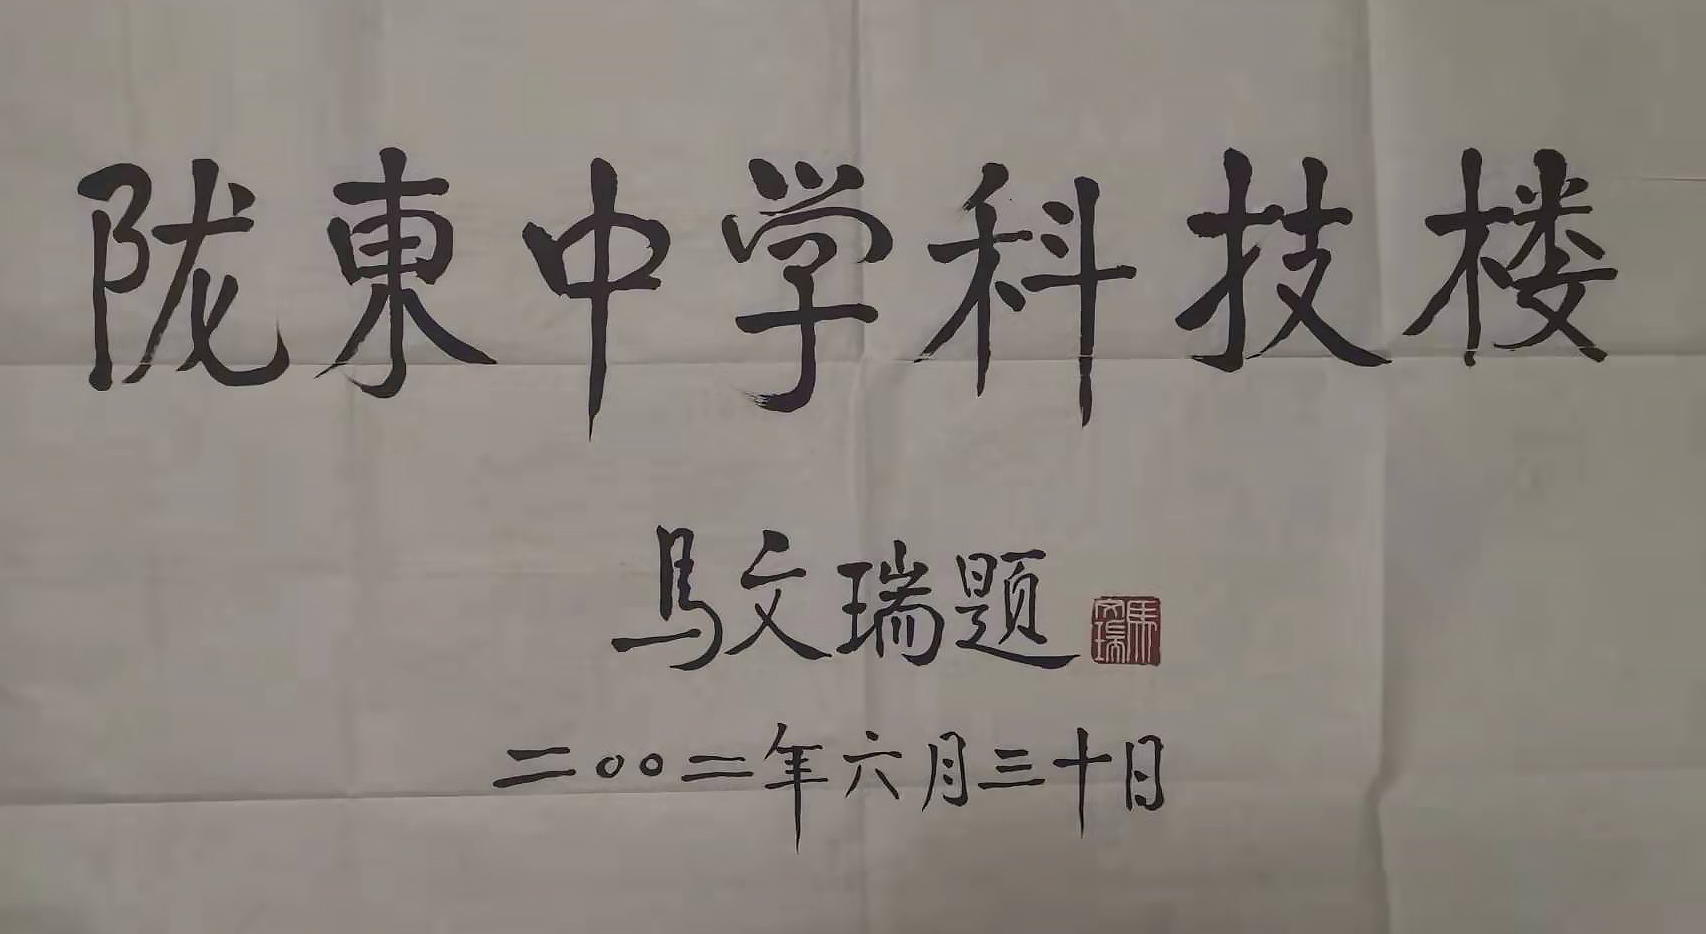 陇東中学科技楼
马文瑞题
二〇〇二年六月三十日
馬文瑞